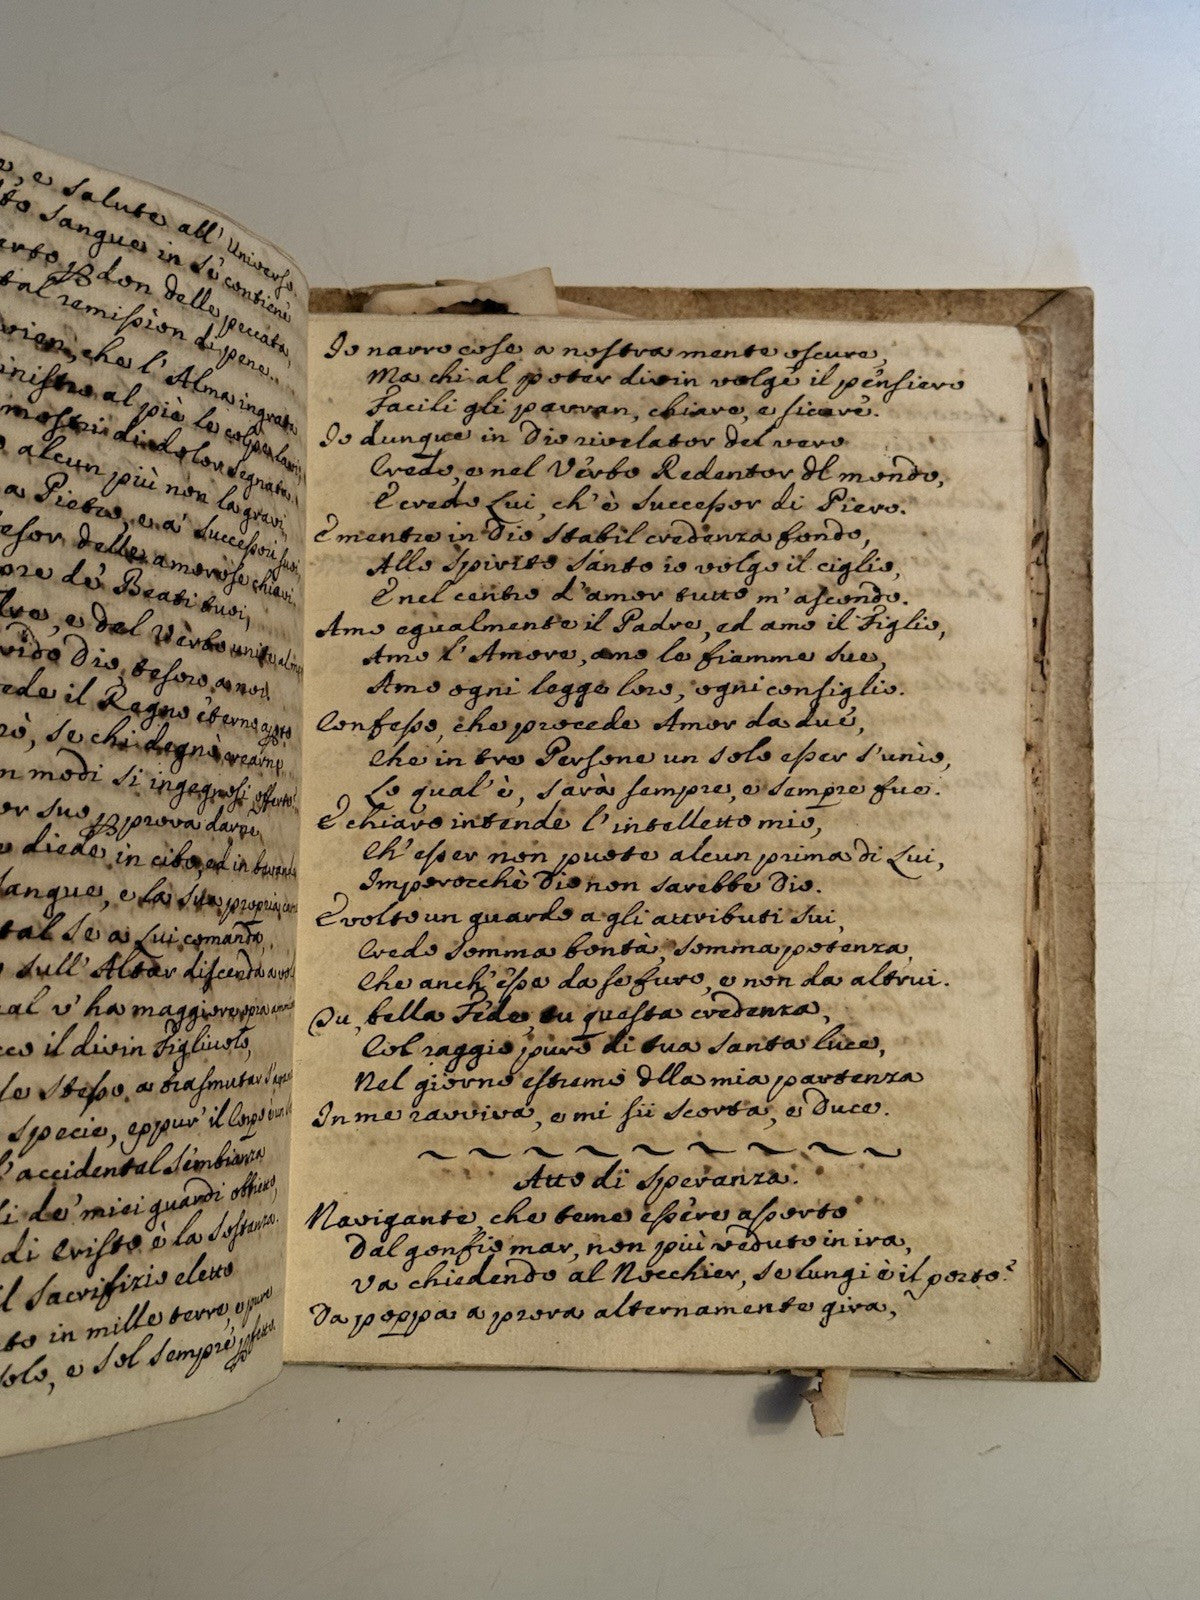 , e salute all' Universo.
sangue in sè contiene
don delle peccata,
tal remission di pene..
vien, che l' Alma ingrata
al piè le colpe
mostri di dolor segnata,
alcun più non la gravi,
a Pietro, e a' Successori suoi,
delle amorose chiavi.
de' Beati tuoi,
e del Verbo unito
Dio, tesoro a noi.
il Regno eterno
, se chi degnò crearne
modi si ingegnosi
suo prova darne
diede in cibo, ed in bevanda
sangue, e la sua propria
tal se a Lui comanda,
sull' Altar discenda
v' ha maggiore opra
il divin Figliuolo,
stesso a trasmutar
specie, eppur' il Corpo
accidental sembianza
de' miei guardi obbietto,
di Cristo è la sostanza.
il sacrifizio eletto
in mille terre, e pure
solo, e sol sempre
Io narro cose a nostra mente oscure,
Ma chi al poter divin volge il pensiero
Facili gli parran, chiare, e sicure.
Io dunque in Dio rivelator del vero
Credo, e nel Verbo Redentor dl mondo,
E credo Lui, ch' è successor di Piero.
E mentre in Dio stabil credenza fondo,
Allo Spirito Santo io volgo il ciglio,
E nel centro d' amor tutto m' ascondo.
Amo egualmente il Padre, ed amo il Figlio,
Amo l' Amore, amo le fiamme sue,
Amo ogni legge loro, ogni consiglio.
Confesso, che procede Amor da due,
Che in tre Persone un solo esser s' unio,
Lo qual' è, sarà sempre, e sempre fue.
E chiaro intende l' intelletto mio,
Ch' esser non puote alcun prima di Lui,
Imperocchè Dio non sarebbe Dio.
E volto un guardo a gli attributi sui,
Credo somma bontà, somma potenza,
Che anch' esse da se furo, e non da altrui.
Tu, bella Fede, tu questa credenza,
Col raggio puro di tua santa luce,
Nel giorno estremo dlla mia partenza
In me ravviva, e mi sii scorta, e Duce.
Atto di speranza.
Navigante, che teme essere assorto
Dal gonfio mar, non più veduto in ira,
Va chiedendo al Nocchier, se lungi è il porto?
Da poppa a prora alternamente gira,